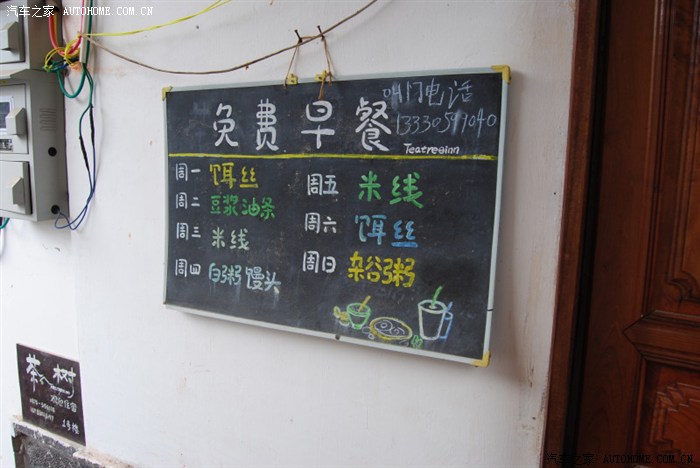 汽车之家 AUTOHOME.COM.CN
叫门电话
免费早餐
Teatreeinn
周一 饵丝
周二 豆浆油条
周三 米线
周四 白粥馒头
周五 米线
周六 饵丝
周日 杂谷粥
茶 树
1号楼
汽车之家 AUTOHOME.COM.CN